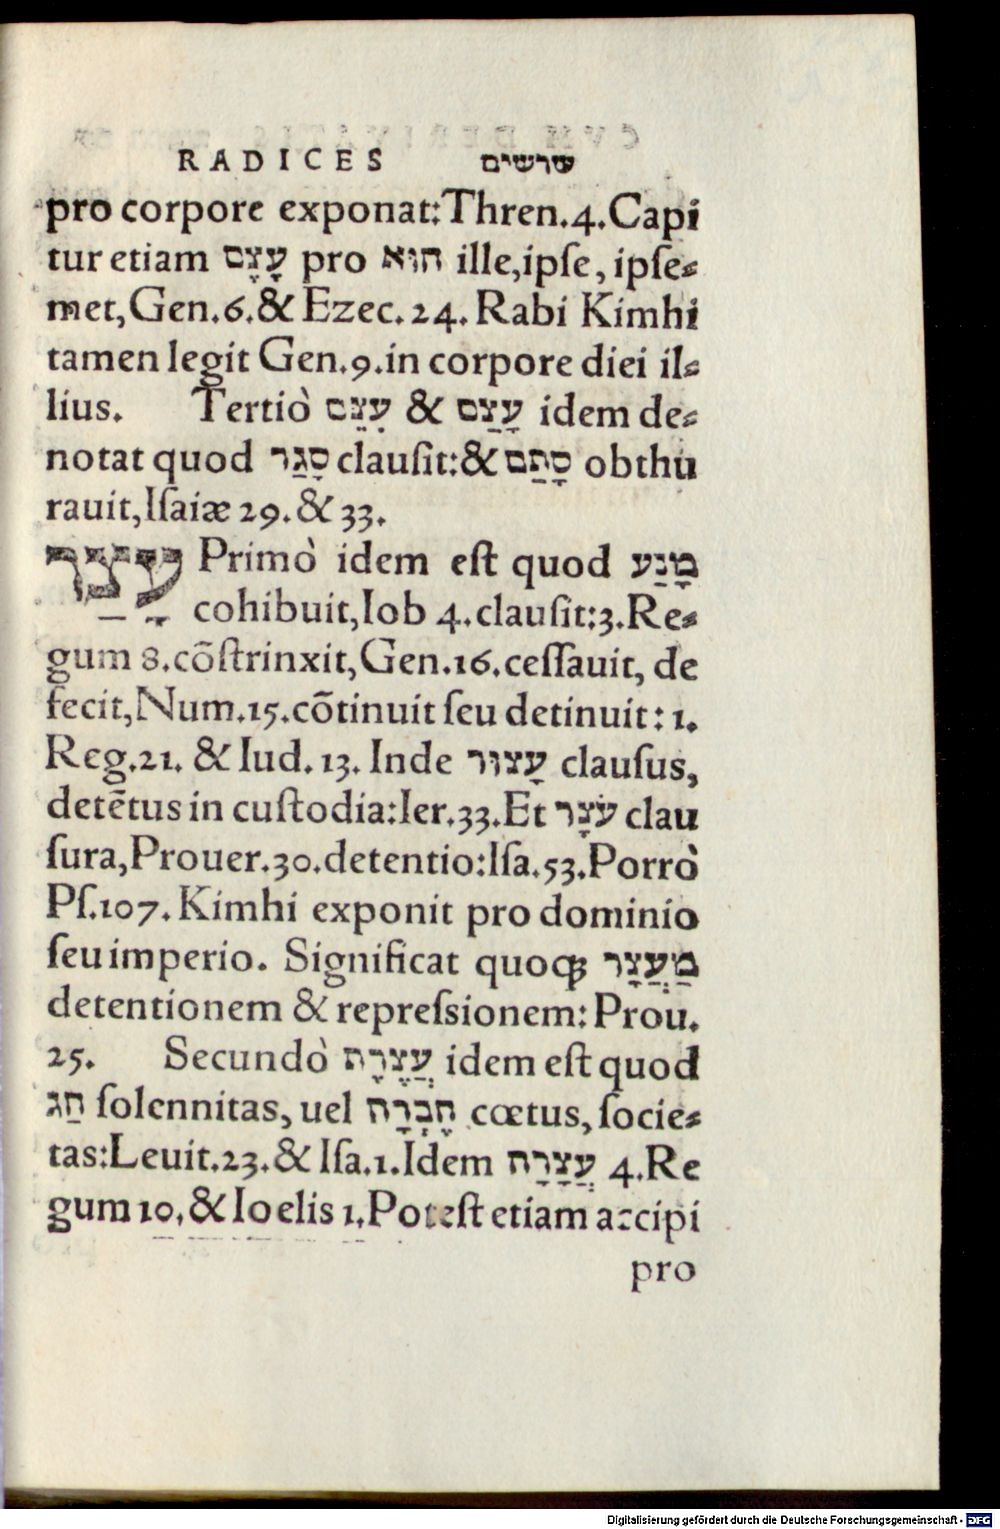 RADICES שרשים
pro corpore exponat: Thren.4. Capi
tur etiam עֶצֶם pro הוא ille, ipſe, ipſe⸗
met, Gen.6. & Ezec. 24. Rabi Kimhi
tamen legit Gen.9. in corpore diei il⸗
lius. Tertiò עָצֵם & עָצַם idem de⸗
notat quod סָגַר clauſit: & סָתַם obthu
rauit, Iſaiæ 29. & 33.
עָצַר Primò idem eſt quod מָנַע
cohibuit, Iob 4. clauſit: 3. Re⸗
gum 8. cōſtrinxit, Gen.16. ceſſauit, de
fecit, Num.15. cōtinuit ſeu detinuit: 1.
Reg.21. & Iud. 13. Inde עָצוּר clauſus,
detētus in cuſtodia: Ier.33. Et עֹצֶר clau
ſura, Prouer.30. detentio: Iſa.53. Porrò
Pſ.107. Kimhi exponit pro dominio
ſeu imperio. Significat quoqꝫ מַעֲצָר
detentionem & repreſsionem: Prou.
25. Secundò עֲצֶרֶת idem eſt quod
חַג ſolennitas, uel חֶבְרָה cœtus, ſocie⸗
tas: Leuit.23. & Iſa.1. Idem עֲצָרָה 4. Re
gum 10, & Ioelis 1. Poteſt etiam accipi
pro
Digitalisierung gefördert durch die Deutsche Forschungsgemeinschaft - DFG